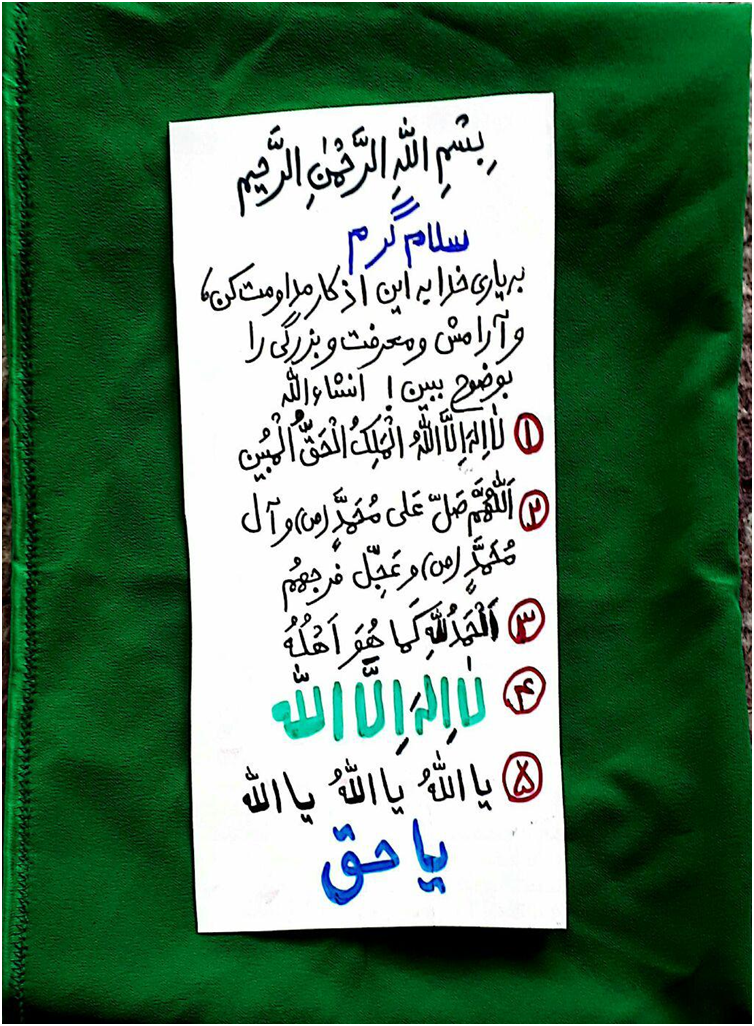 بِسْمِ اللّٰهِ الرَّحْمٰنِ الرَّحیم
سلام گرم
به یاری خدا به این اذکار مداومت کن،
و آرامش و معرفت و بزرگی را
بوضوح ببین! انشاءالله
۱ لاٰاِلٰهَ اِلاَّ اللّٰهُ الْمَلِکُ الْحَقُّ الْمُبین
۲ اَللّٰهُمَّ صَلِّ عَلی مُحَمَّدٍ (ص) و آل
مُحَمَّدٍ (ص) و عَجِّل فرجهُم
۳ اَلْحَمْدُلِلّٰهِ کَما هُوَ اَهْلُهُ
۴ لاٰاِلٰهَ اِلَّا اللّٰه
۵ یا اللّٰهُ یا اللّٰهُ یا اللّٰه
یا حق